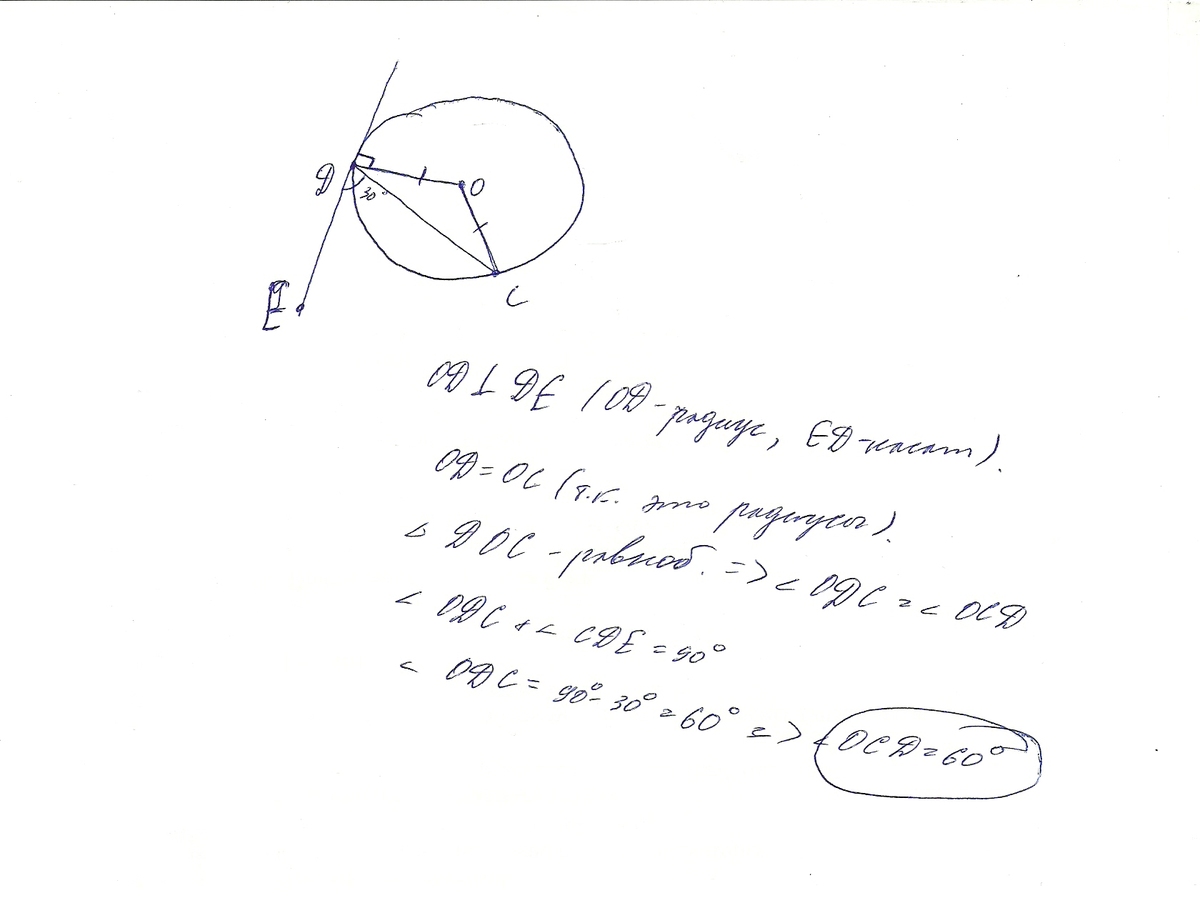 D
30°
O
E
C
OD ⊥ DE (OD - радиус, ED - касат).
OD = OC (т.к. это радиусы).
△ DOC - равноб. => < ODC = < OCD
< ODC + < CDE = 90°
< ODC = 90° - 30° = 60° => < OCD = 60°